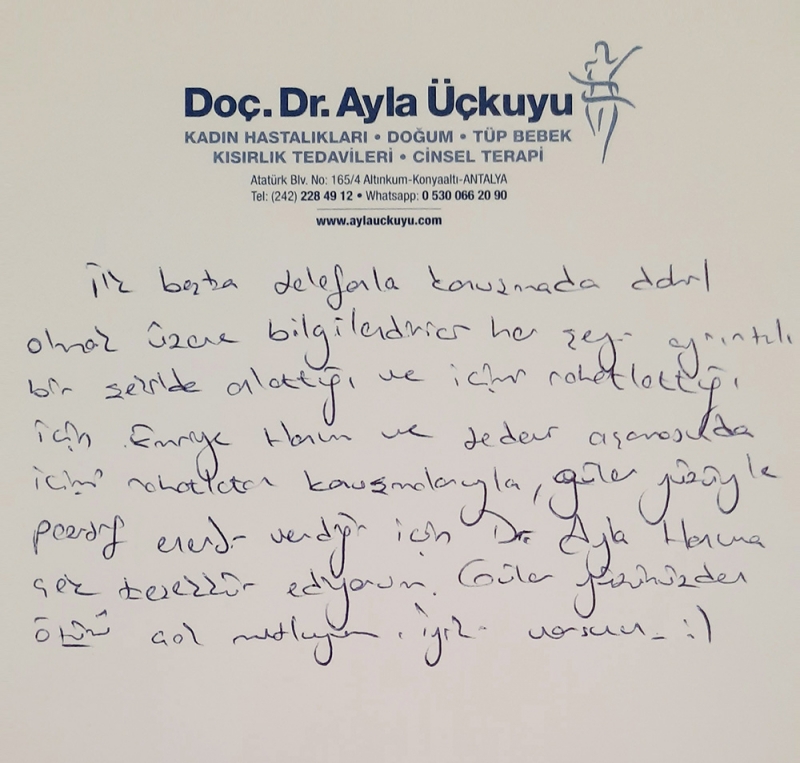 Doç. Dr. Ayla Üçkuyu
KADIN HASTALIKLARI • DOĞUM • TÜP BEBEK
KISIRLIK TEDAVİLERİ • CİNSEL TERAPİ
Atatürk Blv. No: 165/4 Altınkum-Konyaaltı-ANTALYA
Tel: (242) 228 49 12 • Whatsapp: 0 530 066 20 90
www.aylauckuyu.com
İlk başta telefonla konuşmada dahil
olmak üzere bilgilendirici her şeyi ayrıntılı
bir şekilde anlattığı ve içimi rahatlattığı
için Emriye Hanım ve tedavi aşamasında
içimi rahatlatan konuşmalarıyla, güler yüzüyle
pozitif enerji verdiği için Dr. Ayla Hanıma
çok teşekkür ediyorum. Güler yüzünüzden
ötürü çok mutluyum. İyi ki varsınız :)